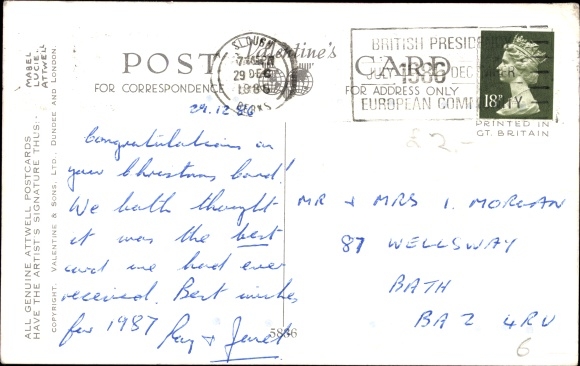 MABEL
LUCIE
ATTWELL
ALL GENUINE ATTWELL POSTCARDS
HAVE THE ARTIST'S SIGNATURE THUS:-
COPYRIGHT. VALENTINE & SONS, LTD., DUNDEE AND LONDON.
POST CARD
Valentine's
FOR CORRESPONDENCE
FOR ADDRESS ONLY
SLOUGH
29 DEC
1986
BERKS
BRITISH PRESIDENCY
JULY 1986 DECEMBER
EUROPEAN COMMUNITY
18P
PRINTED IN
GT. BRITAIN
£2.-
29.12.86
Congratulations on
your Christmas card!
We both thought
it was the best
card we had ever
received. Best wishes
for 1987 Ray & Janet
5886
MR & MRS I. MORGAN
87 WELLSWAY
BATH
BA2 4RU
6